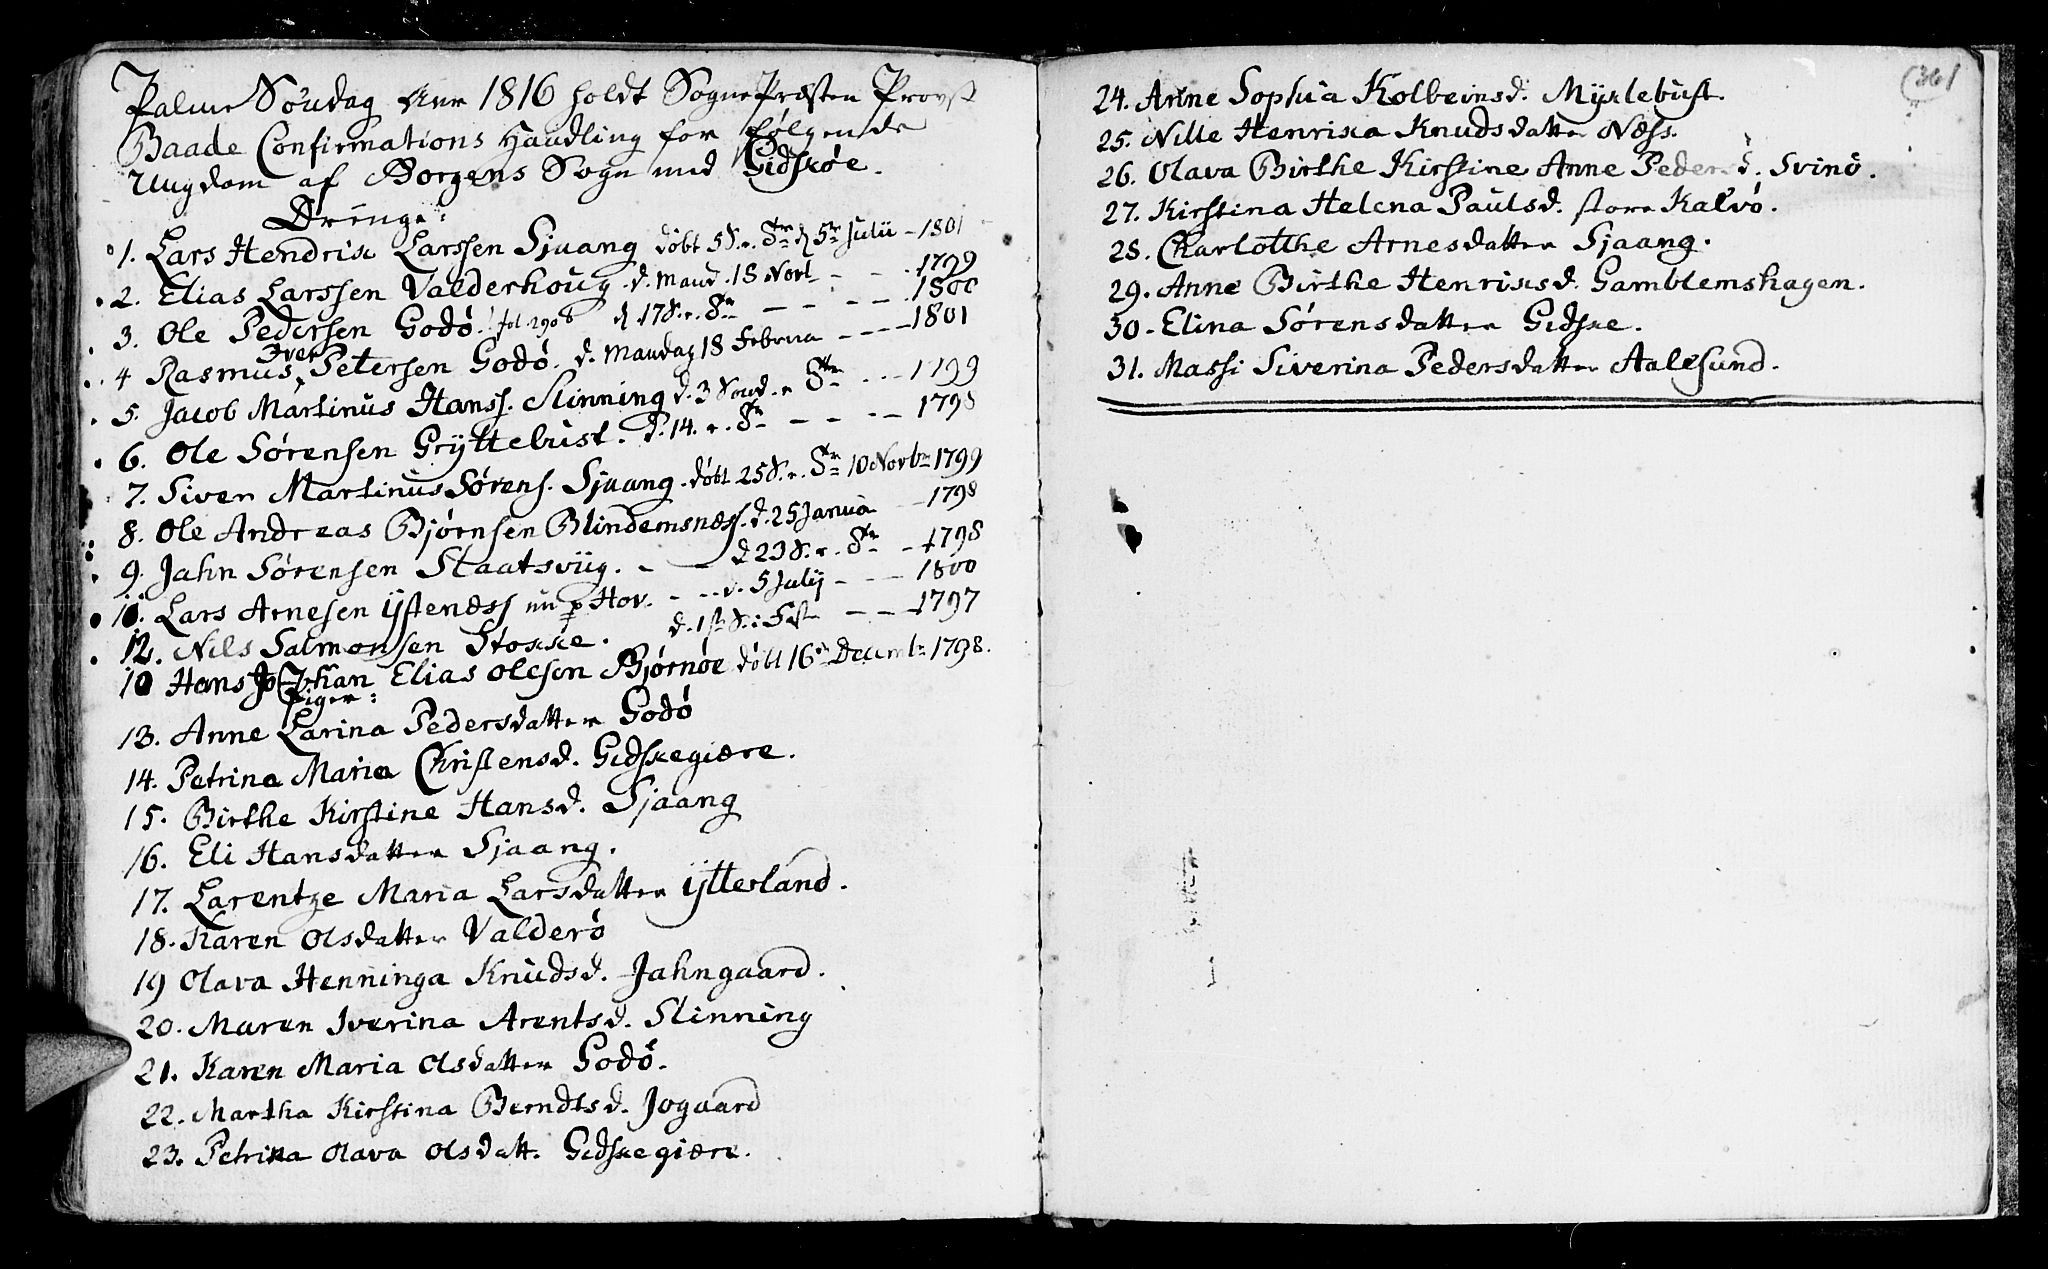 Palme Søndag Anno 1816 holdt SognePræsten Provst
Baade Confirmations Handling for følgende
Ungdom af Borgens Sogn med Gidskøe.
Drenge:
1. Lars Hendrik Larssen Sjaang døbt 5 S. p. Tr. d 5te Julii – 1801
2. Elias Larssen Valderhoug. d. Mand. 18 Novb – – . 1799
3. Ole Pedersen Godö. fol. 290 b d. 17 S. p. Tr – – – – – . 1800
4 Rasmus Iver Petersen Godö. d. Mandag 18 Februa – – – – 1801
5. Jacob Martinus Hanss. Slinning d. 3 Sönd. p Tr. . . – 1799
6. Ole Sørensen Gryttebust. d. 14. p. Tr – – – – 1798
7. Siver Martinus Sørens. Sjaang. døbt 25 S. p. Tr 10 Novbr 1799
8. Ole Andreas Bjørnsen Blindemsnæss. d. 25 Janua – 1798
9. Jahn Sørensen Staatsviig. – – d 23 S. p. Tr – 1798
10. Lars Arnesen Ystenæss nu p Hov. – – d. 5 July – – – 1800
12. Nils Salmonsen Stokke. d. 1ste S. i Fast – – – 1797
10 Hans Johan Elias Olesen Bjørnøe døbt 16de Decembr 1798.
Piger:
13. Anne Larina Pedersdatter Godö
14. Petrina Maria Christensd. Gidskegiære.
15. Birthe Kirstine Hansd. Sjaang
16. Eli Hansdatter Sjaang.
17. Larentze Maria Larsdatter Ytterland.
18. Karen Olsdatter Valderö
19 Olava Henninga Knudsd. Jahngaard.
20. Maren Iverina Arentsd. Slinning
21. Karen Maria Olsdatter Godö.
22. Martha Kirstina Berndtsd. Jogaard
23. Petrina Olava Olsdatt. Gidskegiære.
361
24. Anne Sophia Kolbeinsd. Myklebust.
25. Nille Henrika Knudsdatter Næss.
26. Olava Birthe Kirstine Anne Pedersd. Svinö.
27. Kirstina Helena Paulsd. store Kalvö.
28. Charlotthe Arnesdatter Sjaang.
29. Anne Birthe Henriksd. Gamblemshagen.
30. Elina Sørensdatter Gidske.
31. Massi Siverina Pedersdatter Aalesund.